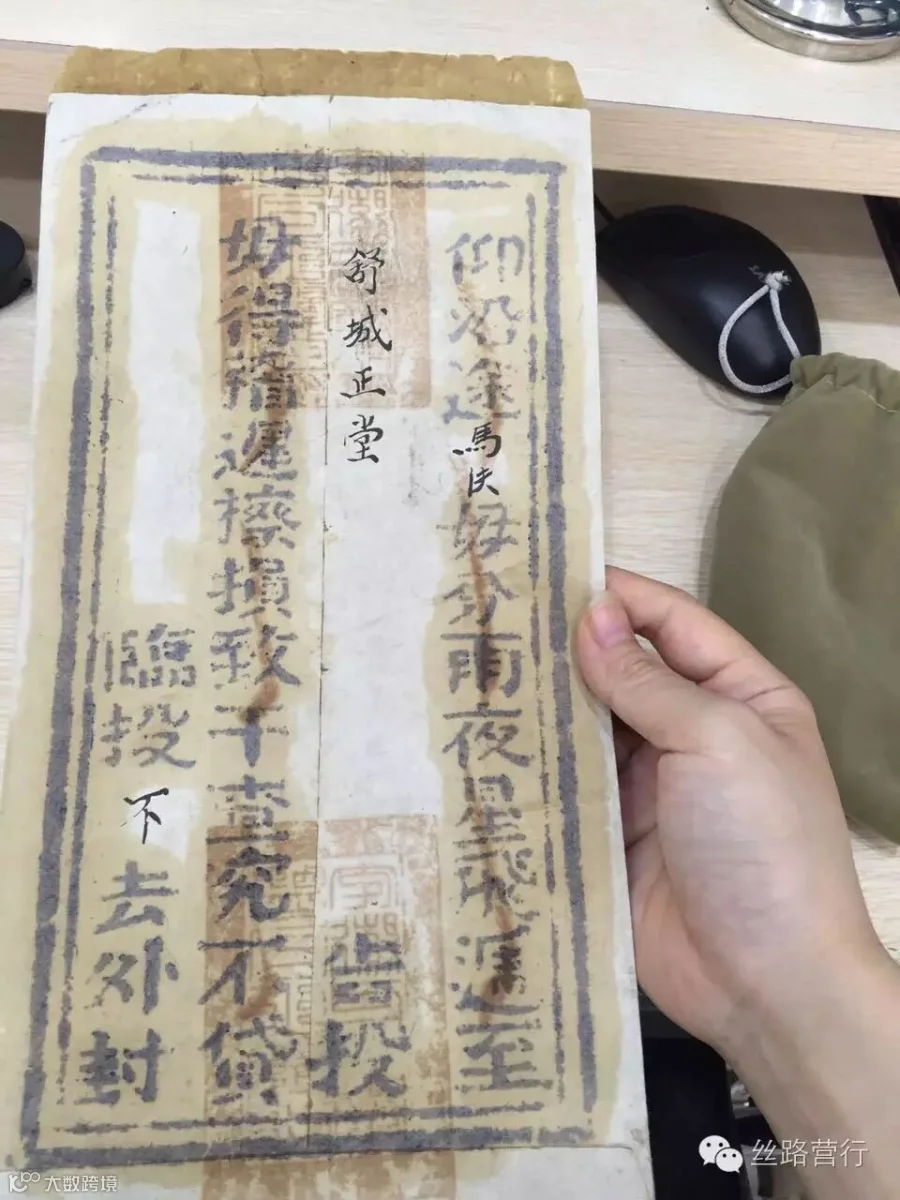 仰沿途馬伕毋分雨夜星飛遞至
舒城正堂 投
毋得稽遲擦損致干查究不貸
臨投不去外封
丝路营行
大数跨境